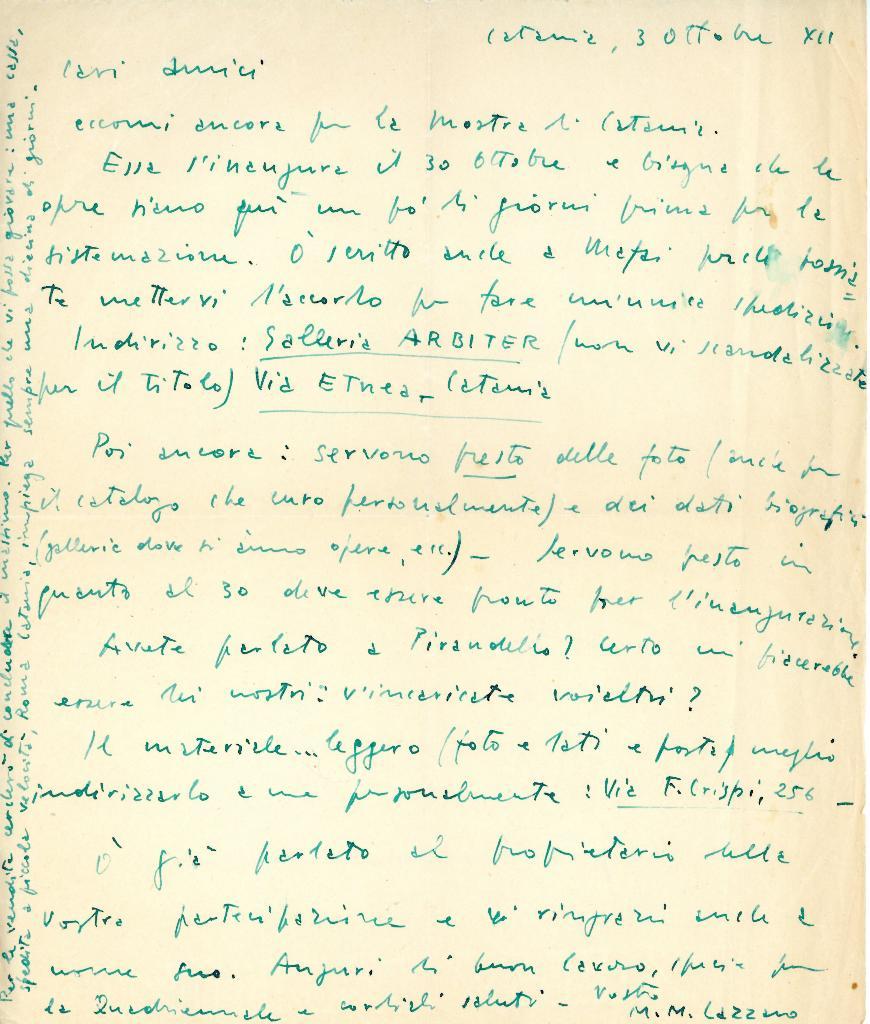 Catania, 3 Ottobre XII
Cari Amici
eccomi ancora per la Mostra di Catania.
Essa s'inaugura il 30 Ottobre e bisogna che le
opre siano quì un pò di giorni prima per la
sistemazione. Ò scritto anche a Mafai perché possia=
te mettervi d'accordo per fare un'unica spedizione.
Indirizzo: Galleria ARBITER (non vi scandalizzate
per il titolo) Via Etnea - Catania
Poi ancora: servono presto delle foto (anche per
il catalogo che curo personalmente) e dei dati biografici
(gallerie dove si ànno opere, ecc.) - Servono presto in
quanto al 30 deve essere pronto per l'inaugurazione.
Avete parlato a Pirandello? Certo mi piacerebbe
essere dei nostri: v'incaricate voialtri?
Il materiale... leggero (foto e dati e posta) meglio
indirizzarlo a me personalmente: Via F. Crispi, 256 -
Ò già parlato al propietario della
vostra partecipazione e vi ringrazii anche a
nome suo. Auguri di buon lavoro, specie per
la Quadriennale e cordiali saluti - Vostro
M. M. Lazzaro
Per le vendite cercherò di concludere il massimo. Per quello che vi possa giovare: una cassa,
spedita a piccola velocità, Roma Catania, impiega sempre una diecina di giorni.